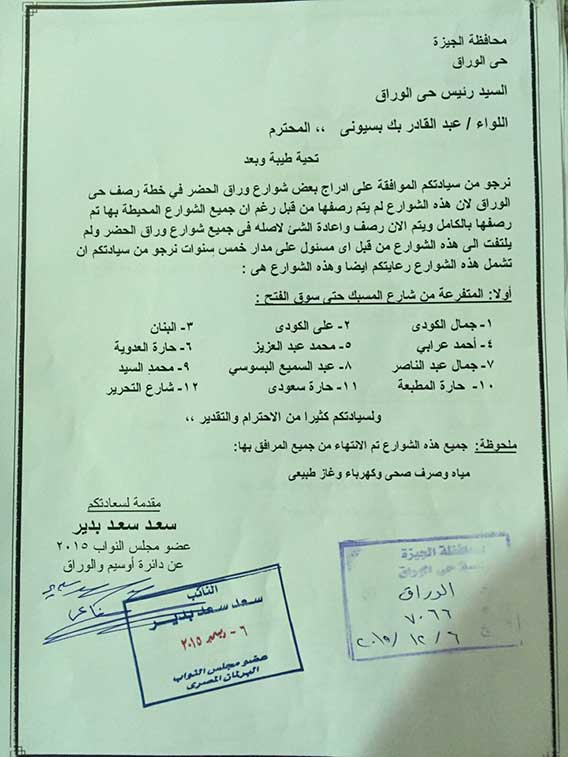 محافظة الجيزة
حى الوراق
السيد رئيس حى الوراق
اللواء / عبد القادر بك بسيونى ،، المحترم
تحية طيبة وبعد
نرجو من سيادتكم الموافقة على ادراج بعض شوارع وراق الحضر في خطة رصف حى
الوراق لان هذه الشوارع لم يتم رصفها من قبل رغم ان جميع الشوارع المحيطة بها تم
رصفها بالكامل ويتم الان رصف واعادة الشئ لاصله فى جميع شوارع وراق الحضر ولم
يلتفت الى هذه الشوارع من قبل اى مسئول على مدار خمس سنوات نرجو من سيادتكم ان
تشمل هذه الشوارع رعايتكم ايضا وهذه الشوارع هى :
أولا: المتفرعة من شارع المسبك حتى سوق الفتح :
١- جمال الكودى ٢- على الكودى ٣- البنان
٤- أحمد عرابي ٥- محمد عبد العزيز ٦- حارة العدوية
٧- جمال عبد الناصر ٨- عبد السميع البسوسي ٩- محمد السيد
١٠- حارة المطبعة ١١- حارة سعودى ١٢- شارع التحرير
ولسيادتكم كثيرا من الاحترام والتقدير ،،
ملحوظة: جميع هذه الشوارع تم الانتهاء من جميع المرافق بها:
مياه وصرف صحى وكهرباء وغاز طبيعى
مقدمة لسعادتكم
سعد سعد بدير
عضو مجلس النواب ٢٠١٥
عن دائرة أوسيم والوراق
النائب
سعد سعد بدير
٦ - ديسمبر ٢٠١٥
عضو مجلس النواب
البرلمان المصرى
محافظة الجيزة
حى الوراق
الوراق
٧٠٦٦
٢٠١٥/١٢/٦